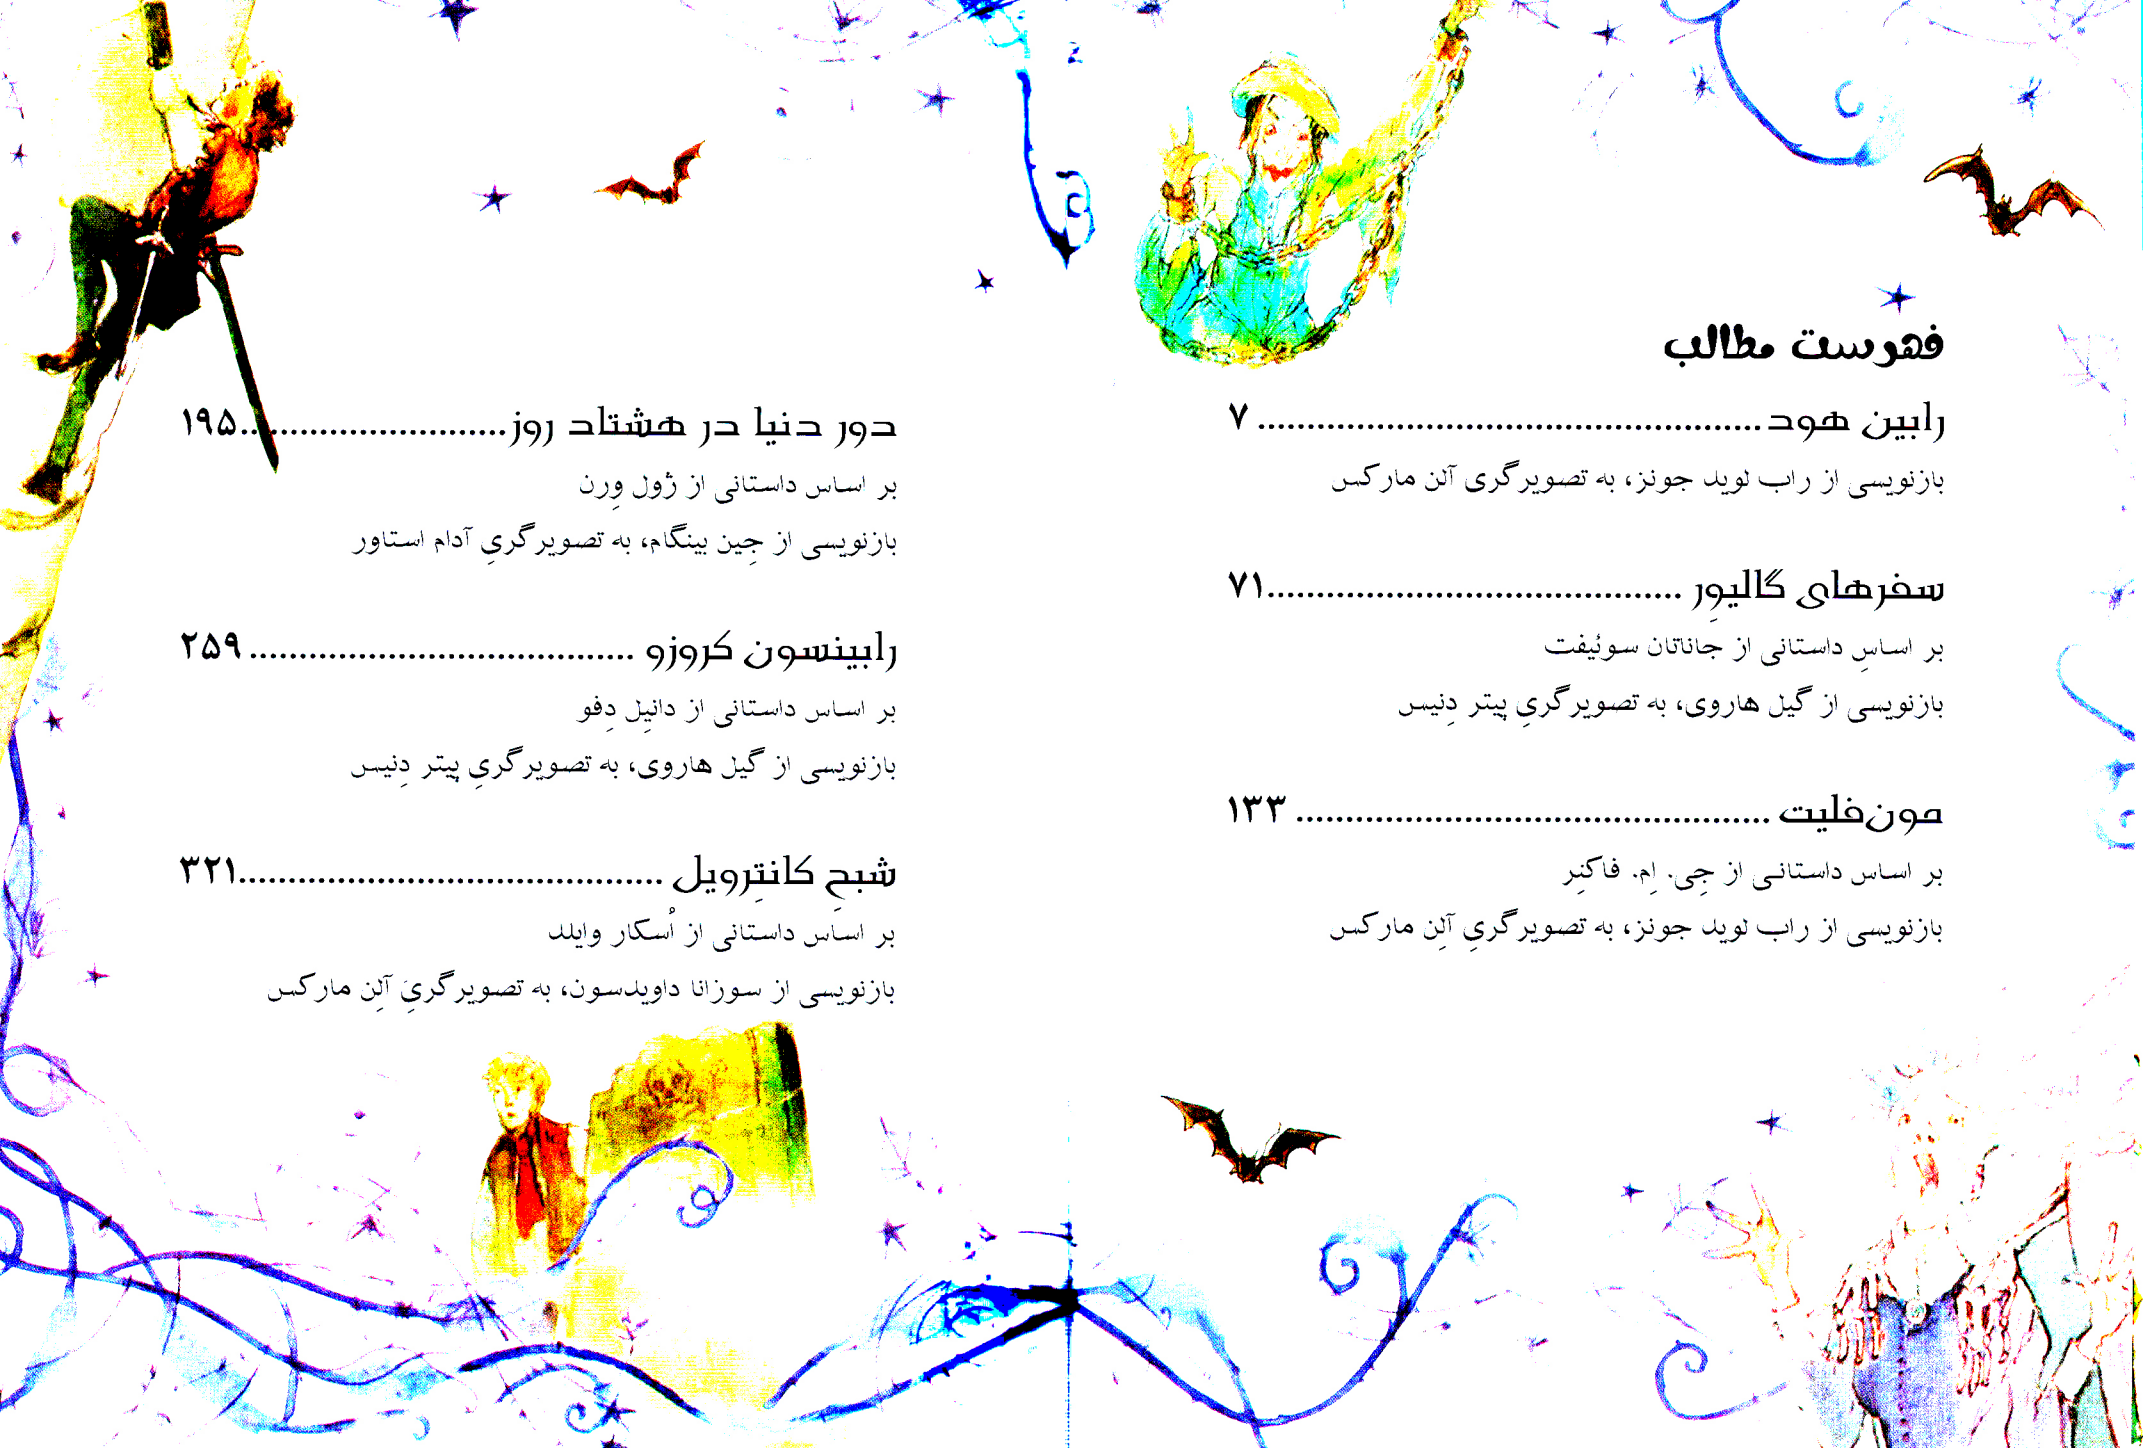 فهرست مطالب
رابین هود................................................... ۷
بازنویسی از راب لوید جونز، به تصویرگری آلن مارکس
سفرهای گالیوِر ..........................................۷۱
بر اساسِ داستانی از جاناتان سوئیفت
بازنویسی از گیل هاروی، به تصویرگریِ پیتر دِنیس
مون‌فلیت ................................................ ۱۳۳
بر اساس داستانی از جِی. اِم. فاکنِر
بازنویسی از راب لوید جونز، به تصویرگریِ آلِن مارکس
دور دنیا در هشتاد روز...........................۱۹۵
بر اساس داستانی از ژول وِرن
بازنویسی از جِین بینگام، به تصویرگریِ آدام استاور
رابینسون کروزو ....................................... ۲۵۹
بر اساس داستانی از دانیِل دِفو
بازنویسی از گیل هاروی، به تصویرگریِ پیتر دِنیس
شبحِ کانتِرویل ...........................................۳۲۱
بر اساس داستانی از اُسکار وایلد
بازنویسی از سوزانا داویدسون، به تصویرگریِ آلِن مارکس